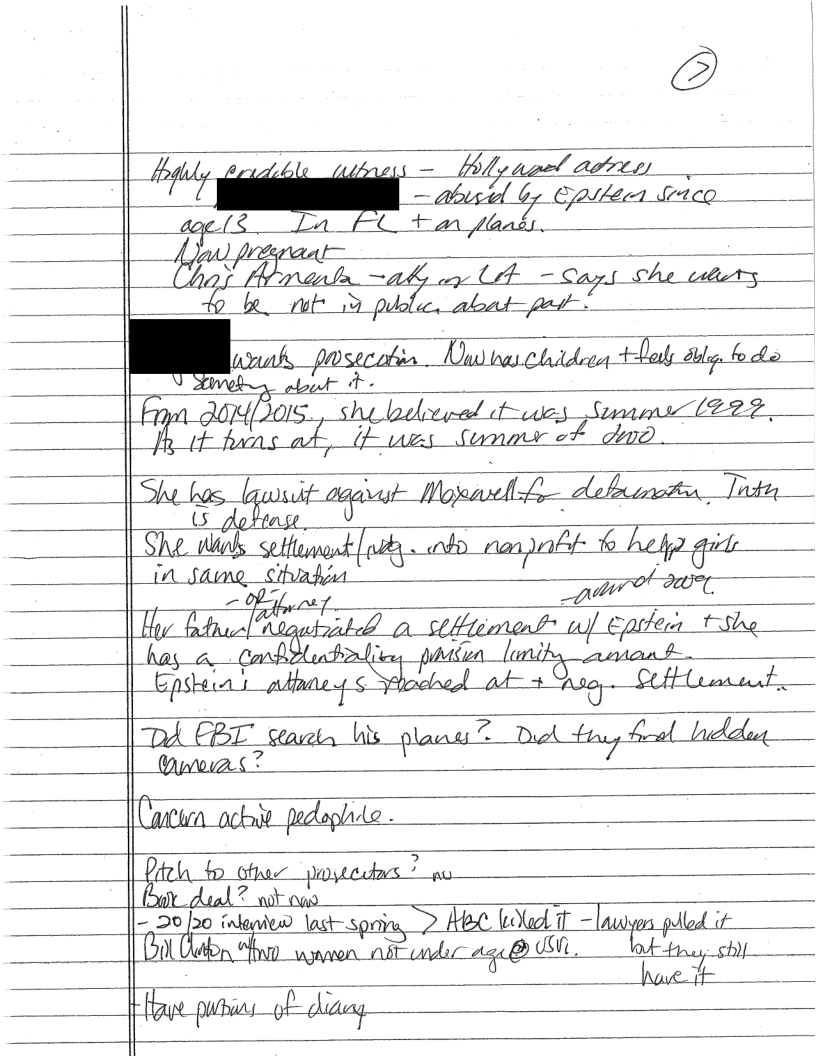 7
Highly credible witness – Hollywood actress
– abused by Epstein since
age 13. In FL + on planes.
Now pregnant
Chris Armenta – atty in LA – says she wants
to be not in public about past.
wants prosecution. Now has children + feels oblig. to do
about it.
From 2014/2015, she believed it was summer 1999.
As it turns out, it was summer of 2000.
She has lawsuit against Maxwell for defamation. Truth
is defense.
She wants settlement / into nonprofit to help girls
in same situation
– or attorney – around 2009.
Her father / negotiated a settlement w/ Epstein + she
has a confidentiality provision limiting amount.
Epstein's attorneys reached out + neg. settlement.
Did FBI search his planes? Did they find hidden
cameras?
Concern active pedophile.
Pitch to other prosecutors? no
Book deal? not now
– 20/20 interview last spring > ABC killed it – lawyers pulled it
but they still
have it
Bill Clinton w/ two women not under age @ USVI.
– Have portions of diary